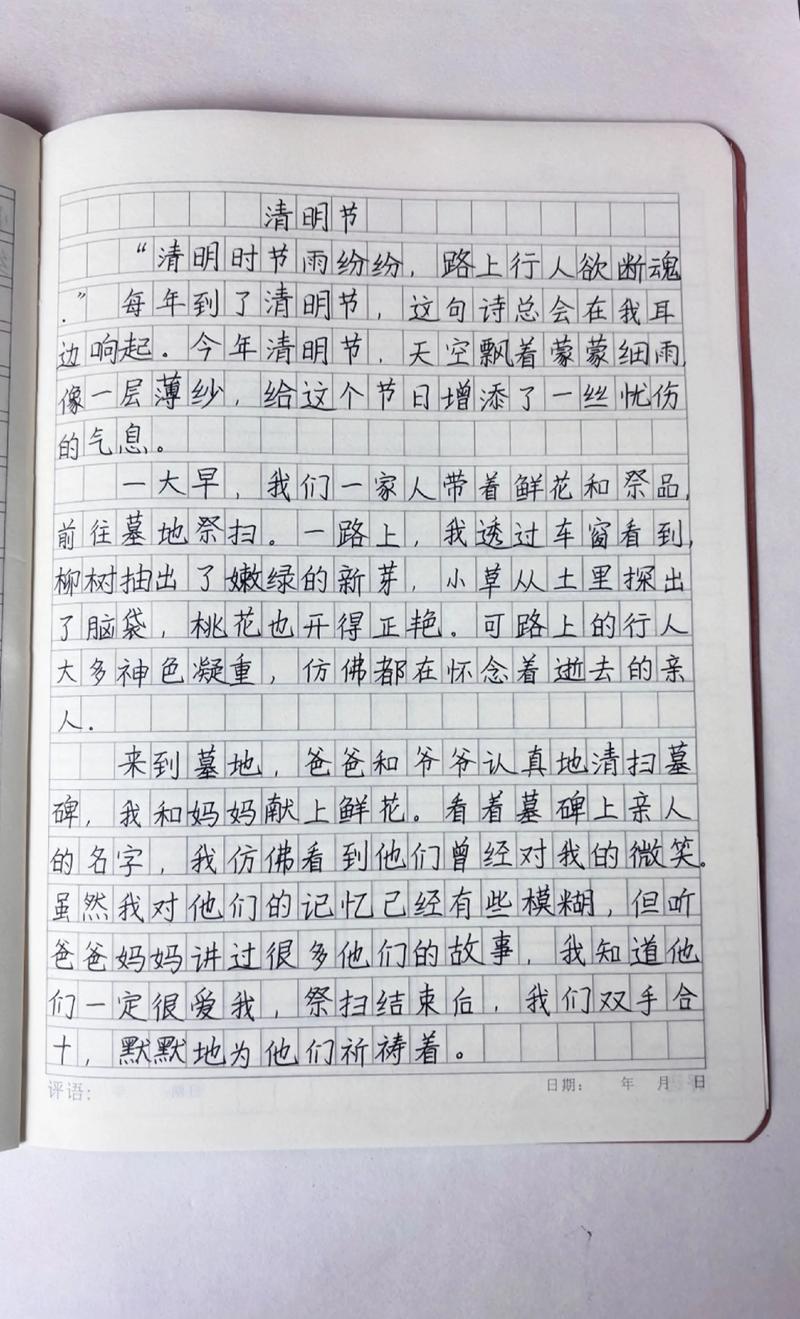 清明节
“清明时节雨纷纷，路上行人欲断魂
.”每年到了清明节，这句诗总会在我耳
边响起。今年清明节，天空飘着蒙蒙细雨，
像一层薄纱，给这个节日增添了一丝忧伤
的气息。
一大早，我们一家人带着鲜花和祭品，
前往墓地祭扫。一路上，我透过车窗看到，
柳树抽出了嫩绿的新芽，小草从土里探出
了脑袋，桃花也开得正艳。可路上的行人
大多神色凝重，仿佛都在怀念着逝去的亲
人.
来到墓地，爸爸和爷爷认真地清扫墓
碑，我和妈妈献上鲜花。看着墓碑上亲人
的名字，我仿佛看到他们曾经对我的微笑。
虽然我对他们的记忆已经有些模糊，但听
爸爸妈妈讲过很多他们的故事，我知道他
们一定很爱我，祭扫结束后，我们双手合
十，默默地为他们祈祷着。
评语: 日期: 年 月 日